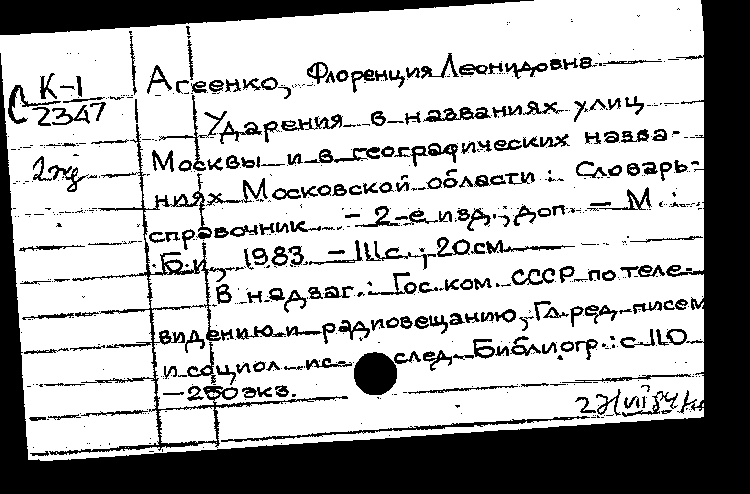 К-1
2347
2 жд
Агеенко, Флоренция Леонидовна
Ударения в названиях улиц
Москвы и в географических назва-
ниях Московской области : Словарь-
справочник. - 2-е изд., доп. - М. :
Б.и., 1983. - 111с. ; 20см.
В надзаг.: Гос. ком. СССР по теле-
видению и радиовещанию, Гл. ред. писем
и социол. ис- след. Библиогр.: с 110
- 250 экз.